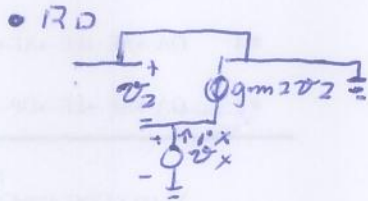 • RD
+
v2 gm2v2
-
+ ix
vx
-